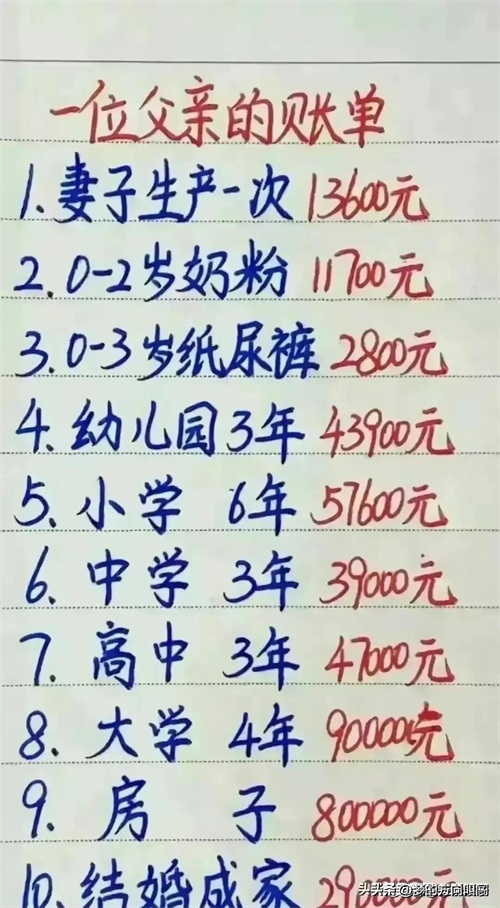 一位父亲的账单
1.妻子生产一次 13600元
2.0-2岁奶粉 11700元
3.0-3岁纸尿裤 2800元
4.幼儿园3年 43900元
5.小学 6年 57600元
6.中学 3年 39000元
7.高中 3年 47000元
8.大学 4年 90000元
9.房子 800000元
10.结婚成家
头条